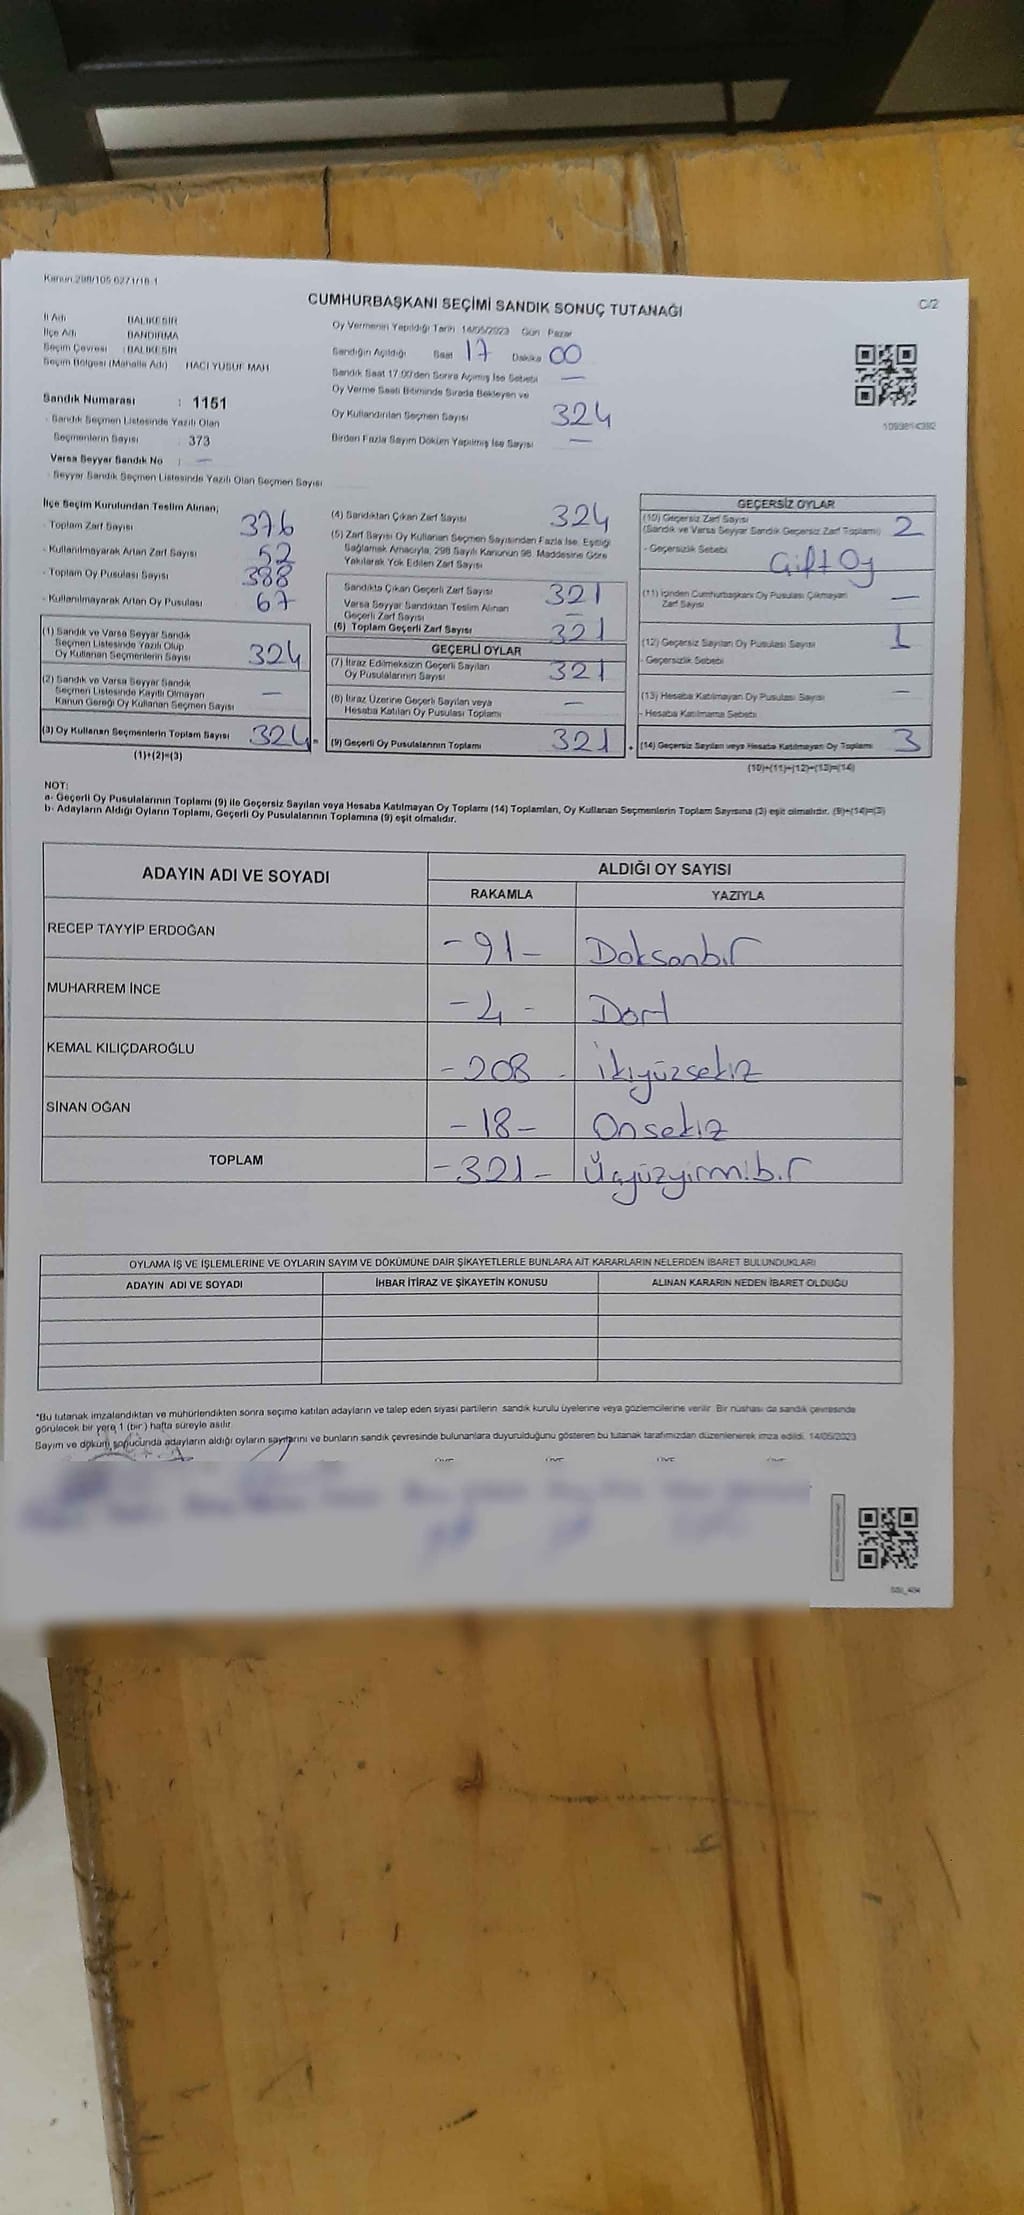 Kanun:298/105 6271/18-1
CUMHURBAŞKANI SEÇİMİ SANDIK SONUÇ TUTANAĞI
C/2
İl Adı BALIKESİR
İlçe Adı BANDIRMA
Seçim Çevresi : BALIKESİR
Seçim Bölgesi (Mahalle Adı) HACI YUSUF MAH
Sandık Numarası : 1151
- Sandık Seçmen Listesinde Yazılı Olan
Seçmenlerin Sayısı : 373
Varsa Seyyar Sandık No : —
- Seyyar Sandık Seçmen Listesinde Yazılı Olan Seçmen Sayısı
Oy Vermenin Yapıldığı Tarih 14/05/2023 Gün Pazar
Sandığın Açıldığı Saat 17 Dakika 00
Sandık Saat 17:00'den Sonra Açılmış İse Sebebi —
Oy Verme Saati Bitiminde Sırada Bekleyen ve
Oy Kullandırılan Seçmen Sayısı 324
Birden Fazla Sayım Döküm Yapılmış İse Sayısı —
İlçe Seçim Kurulundan Teslim Alınan;
- Toplam Zarf Sayısı 376
- Kullanılmayarak Artan Zarf Sayısı 52
- Toplam Oy Pusulası Sayısı 388
- Kullanılmayarak Artan Oy Pusulası 67
(1) Sandık ve Varsa Seyyar Sandık
Seçmen Listesinde Yazılı Olup
Oy Kullanan Seçmenlerin Sayısı 324
(2) Sandık ve Varsa Seyyar Sandık
Seçmen Listesinde Kayıtlı Olmayan
Kanun Gereği Oy Kullanan Seçmen Sayısı —
(3) Oy Kullanan Seçmenlerin Toplam Sayısı 324
(1)+(2)=(3)
(4) Sandıktan Çıkan Zarf Sayısı 324
(5) Zarf Sayısı Oy Kullanan Seçmen Sayısından Fazla İse, Eşitliği
Sağlamak Amacıyla, 298 Sayılı Kanunun 98. Maddesine Göre
Yakılarak Yok Edilen Zarf Sayısı
Sandıkta Çıkan Geçerli Zarf Sayısı 321
Varsa Seyyar Sandıktan Teslim Alınan
Geçerli Zarf Sayısı —
(6) Toplam Geçerli Zarf Sayısı 321
GEÇERLİ OYLAR
(7) İtiraz Edilmeksizin Geçerli Sayılan
Oy Pusulalarının Sayısı 321
(8) İtiraz Üzerine Geçerli Sayılan veya
Hesaba Katılan Oy Pusulası Toplamı —
(9) Geçerli Oy Pusulalarının Toplamı 321
GEÇERSİZ OYLAR
(10) Geçersiz Zarf Sayısı
(Sandık ve Varsa Seyyar Sandık Geçersiz Zarf Toplamı) 2
- Geçersizlik Sebebi Çift Oy
(11) İçinden Cumhurbaşkanı Oy Pusulası Çıkmayan
Zarf Sayısı —
(12) Geçersiz Sayılan Oy Pusulası Sayısı 1
- Geçersizlik Sebebi
(13) Hesaba Katılmayan Oy Pusulası Sayısı —
- Hesaba Katılmama Sebebi
(14) Geçersiz Sayılan veya Hesaba Katılmayan Oy Toplamı 3
(10)+(11)+(12)+(13)=(14)
NOT:
a- Geçerli Oy Pusulalarının Toplamı (9) ile Geçersiz Sayılan veya Hesaba Katılmayan Oy Toplamı (14) Toplamları, Oy Kullanan Seçmenlerin Toplam Sayısına (3) eşit olmalıdır. (9)+(14)=(3)
b- Adayların Aldığı Oyların Toplamı, Geçerli Oy Pusulalarının Toplamına (9) eşit olmalıdır.
ADAYIN ADI VE SOYADI ALDIĞI OY SAYISI
RAKAMLA YAZIYLA
RECEP TAYYİP ERDOĞAN -91- Doksanbir
MUHARREM İNCE -4- Dört
KEMAL KILIÇDAROĞLU -208- İkiyüzsekiz
SİNAN OĞAN -18- Onsekiz
TOPLAM -321- Üçyüzyirmibir
OYLAMA İŞ VE İŞLEMLERİNE VE OYLARIN SAYIM VE DÖKÜMÜNE DAİR ŞİKAYETLERLE BUNLARA AİT KARARLARIN NELERDEN İBARET BULUNDUKLARI
ADAYIN ADI VE SOYADI İHBAR İTİRAZ VE ŞİKAYETİN KONUSU ALINAN KARARIN NEDEN İBARET OLDUĞU
*Bu tutanak imzalandıktan ve mühürlendikten sonra seçime katılan adayların ve talep eden siyasi partilerin sandık kurulu üyelerine veya gözlemcilerine verilir. Bir nüshası da sandık çevresinde
görülecek bir yere 1 (bir) hafta süreyle asılır.
Sayım ve döküm sonucunda adayların aldığı oyların sayılarını ve bunların sandık çevresinde bulunanlara duyurulduğunu gösteren bu tutanak tarafımızdan düzenlenerek imza edildi. 14/05/2023